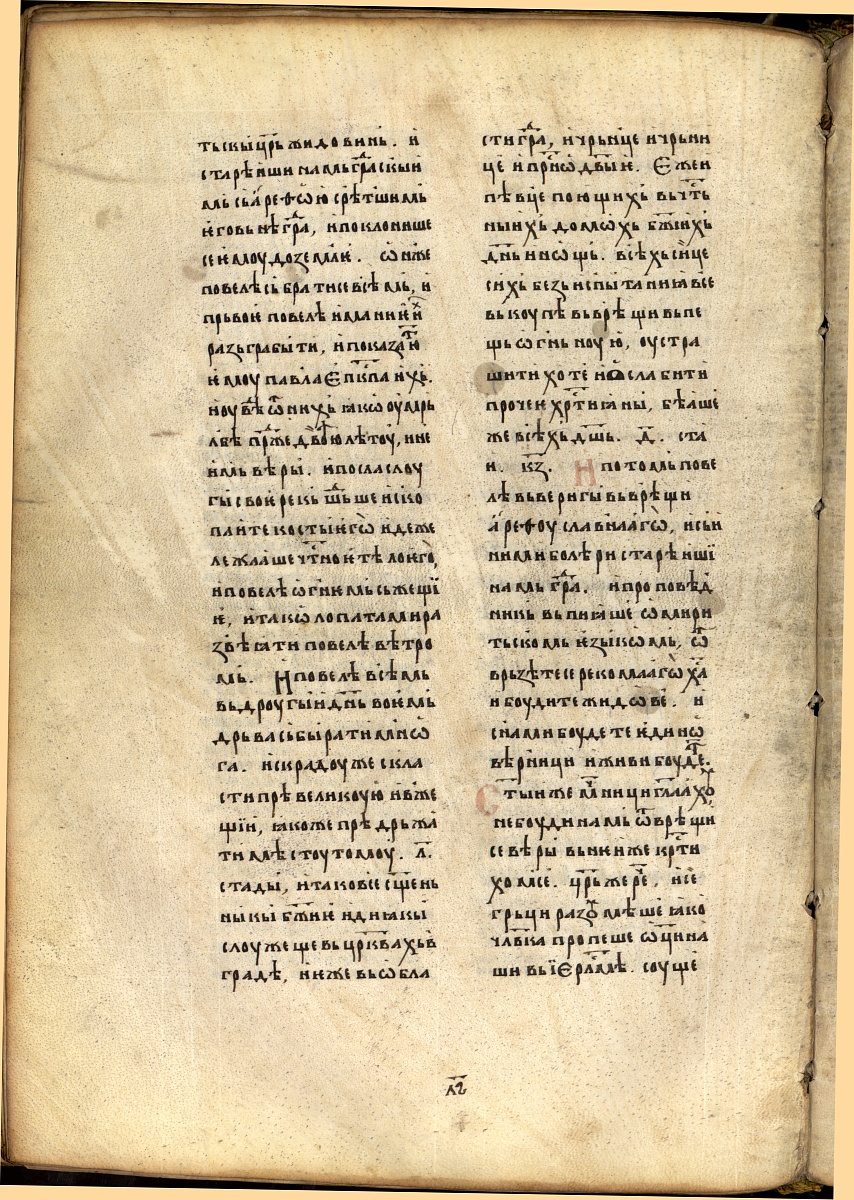 тьскы црь жидовинь. и
старѣиши намь градскыи
мь сь арефѡю срѣтшимь
его вьнѣ гра, и поклонише
се емоу до землѥ. ѡ нѥже
повелѣ сьбратисе всѣмь, и
прьвоѥ повелѣ имание и
разьграбыти, и показати ю
ѥмоу павла епкпа ихь.
и оувѣ ѿ нихь ꙗкѡ оумрь
лбѣ прѣже двою лѣтоу, и не
имь вѣры. и посла слоу
гы своѥ рекь шьше иско
паите косты ѥгѡ идеже
лежлаше чтно ѥ тѣло ѥго,
и повелѣ ѡгнѥмь сьжещи
ѥ, и такѡ лопатами ра
звѣꙗти повелѣ вѣтро
мь. И повелѣ всѣмь
вь дроугыи днь воѥмь
дрьва сьбырати мнѡ
га. и скрадоу же скла
сти прѣвеликоую и вꙑже
щїи, ꙗкоже прѣдрьжа
ти мѣстоу томоу. л.
стады, и тако все сщень
ныкы бжиѥ и диꙗкы
слоужеще вь црквахь в
градѣ, и иже вь ѡбла
сти гра, и чрьнце и чрьни
це и прнѡдвыѥ. Еже и
пѣвце поющихь вь чть
ныихь домѡхь бжихь
днь и нѡщь. всѣхь сице
сихь безь испытаниꙗ все
вькоупѣ вьврѣщи вь пе
щь ѡгньноую, оустра
шити хоте и ѡслабити
прочеѥ хртиꙗны, бѣаше
же всѣхь дшь. д. ста
и. кз. И по томь пове
лѣ вь веригы вьврѣщи
арефоу славнаагѡ, и сь и
ними болѣри старѣишї
намь гра. и проповѣд
никь вьпиꙗше ѡмири
тьскомь ѥзыкѡмь, ѿ
врьзѣтесе рекомаагѡ ха
и боудите жидѡве. и
снами боудете ѥдинѡ
вѣрници и живи боуде.
Стыи же мници глаахо
не боуди намь ѿврѣщи
се вѣры вь нѥиже крти
хомсе. црь же ре, и се
грьци разоумѣше ꙗко
члвка пропеше ѡци на
ши вь їерлмѣ. соуще
л꙯г